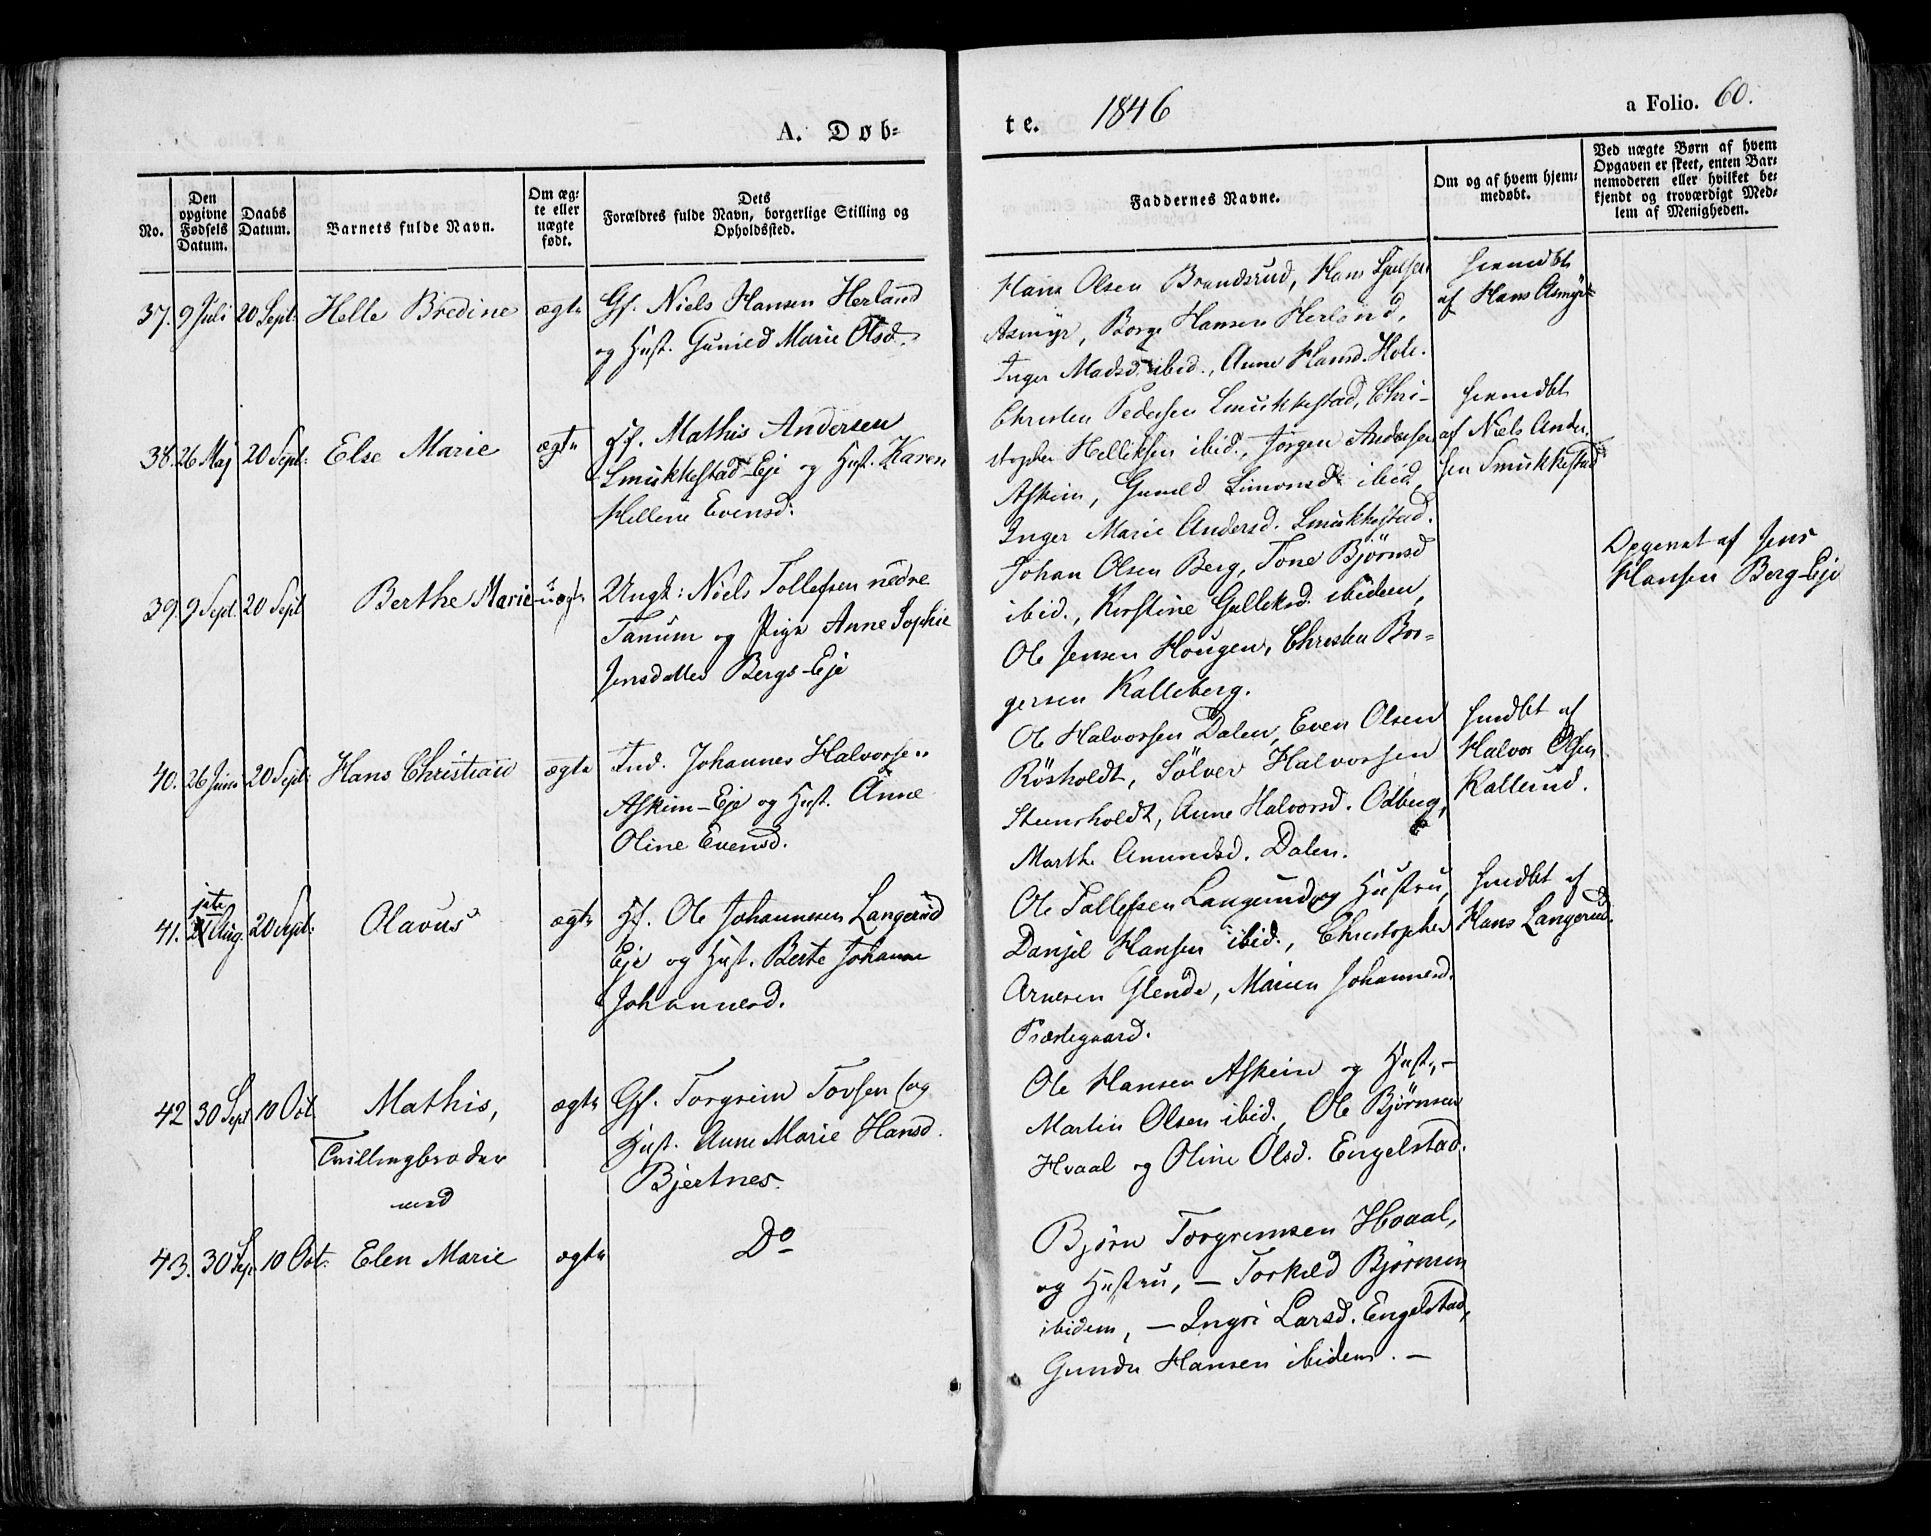 A. Døb-
te.
1846
a Folio. 60.
No.
Den
opgivne
Fødsels
Datum.
Daabs
Datum.
Barnets fulde Navn.
Om æg-
te eller
nægte
født.
Dets
Forældres fulde Navn, borgerlige Stilling og
Opholdssted.
Faddernes Navne.
Om og af hvem hjem-
medøbt.
Ved nægte Børn af hvem
Opgaven er skeet, enten Bar-
nemoderen eller hvilket be-
kjendt og troværdigt Med-
lem af Menigheden.
37. 9 Juli 20 Sept: Helle Bredine ægte
Gf. Niels Hansen Herland
og Hust. Gunild Marie Olsd.
Hans Olsen Brandsrud, Hans
Asmyr, Borge Hansen Herland,
Inger Madsd. ibid., Anne Hansd. Hole.
hjemdbt
af Hans Asmyr
38. 26 Maj 20 Sept: Else Marie ægte
Hf. Mathis Andersen
Smukkestad-Eje og Hust. Karen
Hellene Evensd:
Christen Pedersen Smukkestad, Chri-
stopher Helliksen ibid., Jørgen Andersen
Askim, Gunild Simonsd. ibid,
Inger Marie Andersd. Smukkestad.
hjemdbt
af Niels Ander
sen Smukkestad
39. 9 Sept. 20 Sept Berthe Marie uægt
Ungk: Niels Tollefsen nedre
Tanum og Pige Anne Sophie
Jensdatter Bergs-Eje
Johan Olsen Berg, Tone Bjørnsd
ibid., Kirstine Gulliksd. ibidem,
Ole Jensen Hougen, Christen Bor-
gersen Kalleberg.
Opgivet af Jens
Hansen Berg-Eje
40. 26 Juni 20 Sept: Hans Christian ægte
Ind. Johannes Halvorsen
Askim-Eje og Hust. Anne
Oline Evensd.
Ole Halvorsen Dalen, Even Olsen
Røsholdt, Sølver Halvorsen
Steensholdt, Anne Halvorsd. Odberg,
Marthe Amundsd. Dalen.
hmdbt af
Halvor Olsen
Kallerud.
41. Aug. 20 Sept: Olavus ægte
Hf. Ole Johannesen Langerud
Eje og Hust. Berte Johanne
Johannesd.
Ole Tollefsen Langerud og Hustru,
Danjel Hansen ibid., Christopher
Arnesen Glende, Maren Johannesd.
Præstegaard.
hmdbt af
Hans Langerud.
42 30 Sept 10 Oct. Mathis, ægte
Tvillingbroder
med
Gf. Torgrim Tovsen (og
Hust. Anne Marie Hansd.
Bjertnes.
Ole Hansen Askim og Hust., -
Martin Olsen ibid., Ole Bjørnsen
Hvaal og Oline Olsd. Engelstad.
43. 30 Sep. 10 Oct. Elen Marie ægte
Do
Bjørn Torgrimsen Hvaal,
og Hustru, - Torkild Bjørnsen
ibidem, - Ingri Larsd. Engelstad,
Gunder Hansen ibidem. -